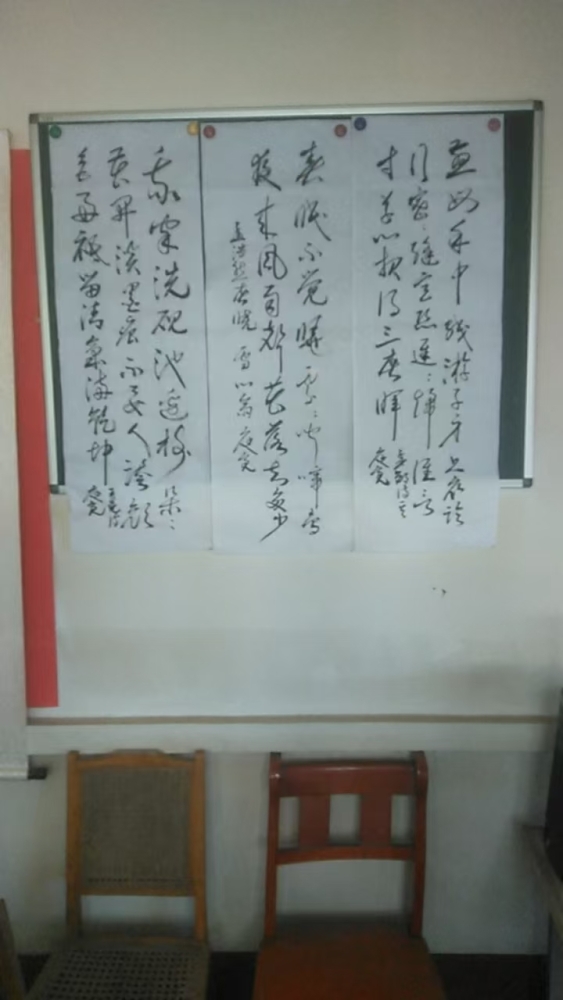 慈母手中线游子身上衣临
行密：缝意恐迟：归谁言
寸草心报得三春晖
孟郊诗
春眠不觉晓处：闻啼鸟
夜来风雨声花落知多少
孟浩然春晓
我家洗砚池边树朵：
花开淡墨痕不要人夸颜
色好祇留清气满乾坤
王冕诗